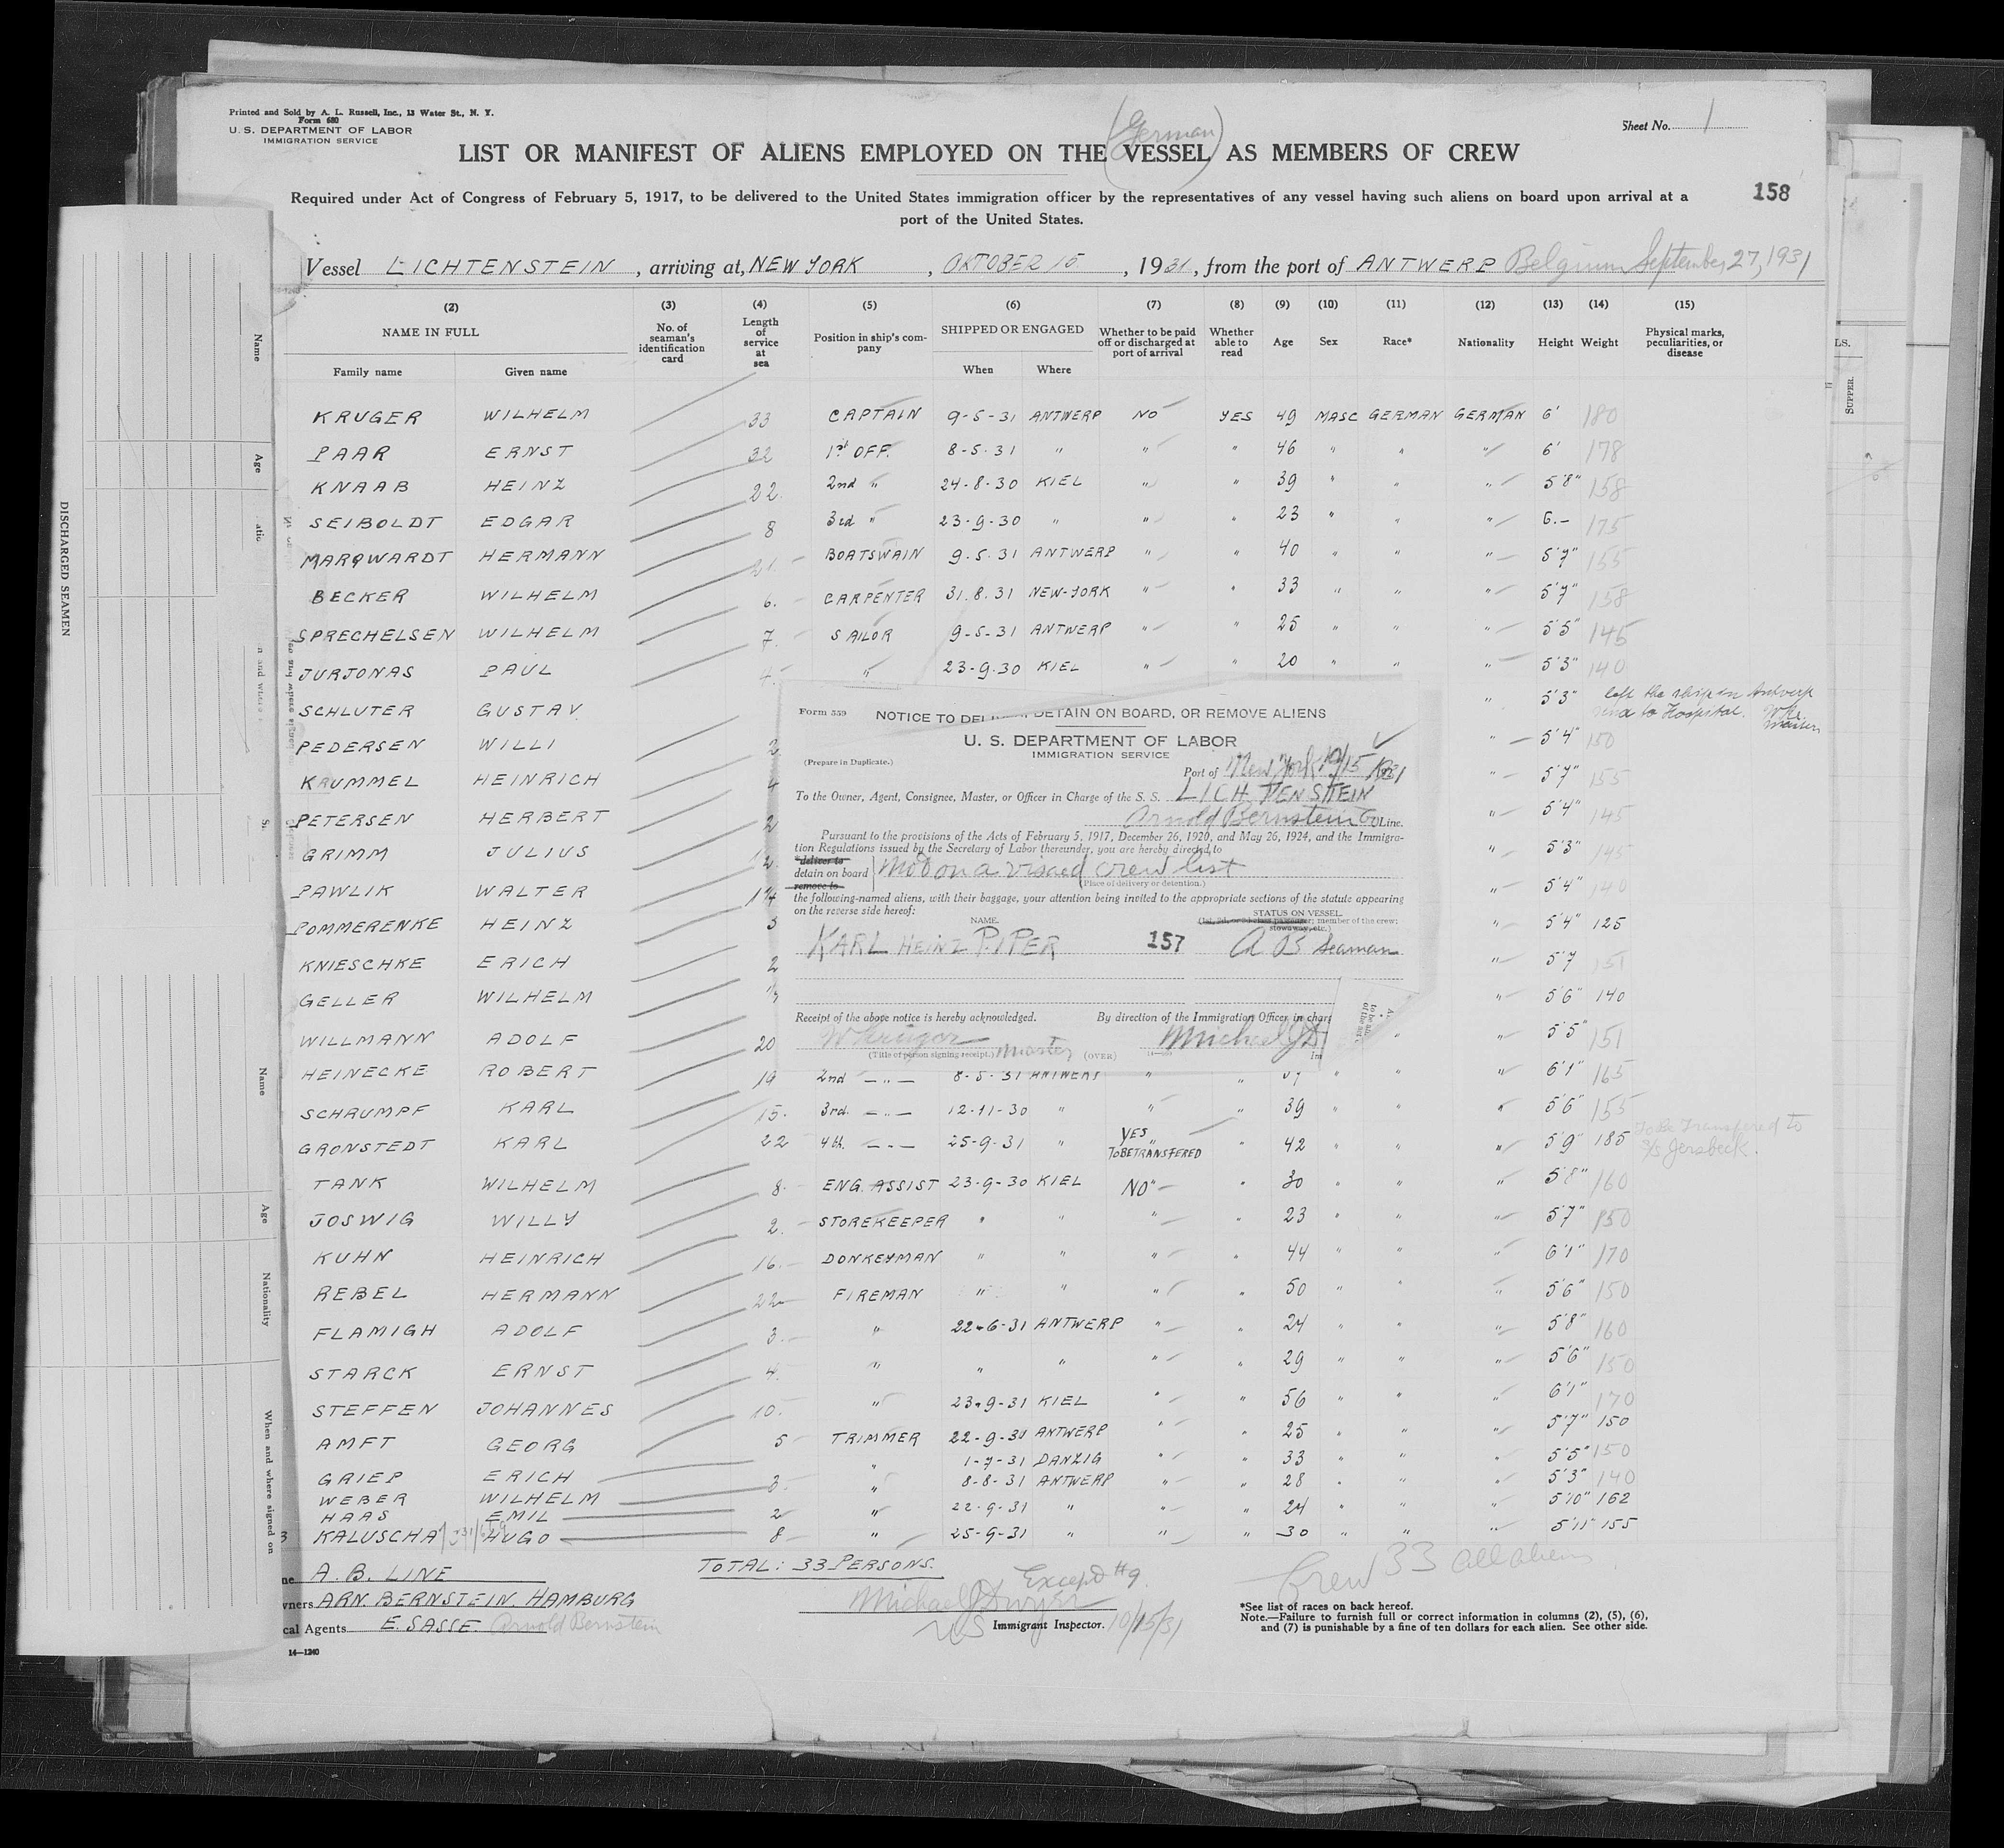 Printed and Sold by A. L. Russell, Inc., 13 Water St., N. Y.
Form 680
U. S. DEPARTMENT OF LABOR
IMMIGRATION SERVICE
Sheet No. 1
(German)
LIST OR MANIFEST OF ALIENS EMPLOYED ON THE VESSEL AS MEMBERS OF CREW
Required under Act of Congress of February 5, 1917, to be delivered to the United States immigration officer by the representatives of any vessel having such aliens on board upon arrival at a
port of the United States.
158
Vessel LICHTENSTEIN, arriving at, NEW YORK, OKTOBER 15, 1931, from the port of ANTWERP Belgium September 27, 1931
(2) (3) (4) (5) (6) (7) (8) (9) (10) (11) (12) (13) (14) (15)
NAME IN FULL
Family name Given name
No. of seaman's identification card
Length of service at sea
Position in ship's company
SHIPPED OR ENGAGED
When Where
Whether to be paid off or discharged at port of arrival
Whether able to read
Age Sex Race* Nationality Height Weight
Physical marks, peculiarities, or disease
KRUGER WILHELM 33 CAPTAIN 9-5-31 ANTWERP NO YES 49 MASC GERMAN GERMAN 6' 180
PAAR ERNST 32 1st OFF. 8-5-31 " " " 46 " " " 6' 178
KNAAB HEINZ 22 2nd " 24-8-30 KIEL " " 39 " " " 5'8" 158
SEIBOLDT EDGAR 8 3rd " 23-9-30 " " " 23 " " " 6.- 175
MARQWARDT HERMANN 21 BOATSWAIN 9.5.31 ANTWERP " " 40 " " " 5'7" 155
BECKER WILHELM 6. CARPENTER 31.8.31 NEW-YORK " " 33 " " " 5'7" 158
SPRECHELSEN WILHELM 7. SAILOR 9-5-31 ANTWERP " " 25 " " " 5'5" 145
JURJONAS PAUL 4. " 23-9-30 KIEL " " 20 " " " 5'3" 140
SCHLUTER GUSTAV " 5'3" left the ship in Antwerp
to Hospital.
PEDERSEN WILLI 2 " 5'4" 150
KRUMMEL HEINRICH 4 " 5'7" 155
PETERSEN HERBERT 2 " 5'4" 145
GRIMM JULIUS " 5'3" 145
PAWLIK WALTER " 5'4" 140
POMMERENKE HEINZ 3 " 5'4" 125
KNIESCHKE ERICH 2 " 5'7 151
GELLER WILHELM " 5'6" 140
WILLMANN ADOLF 20 " " 5'5" 151
HEINECKE ROBERT 19 2nd -"- 8-5-31 ANTWERP " " " " " 6'1" 165
SCHRUMPF KARL 15. 3rd. -"- 12-11-30 " " " 39 " " " 5'6" 155
GRONSTEDT KARL 22 4th. -"- 25-9-31 " YES TO BE TRANSFERED " 42 " " " 5'9" 185 To Be Transfered to
S/S Jersbeck.
TANK WILHELM 8. ENG. ASSIST 23-9-30 KIEL NO " 30 " " " 5'8" 160
JOSWIG WILLY 2. STOREKEEPER " " " " 23 " " " 5'7" 150
KUHN HEINRICH 16. DONKEYMAN " " " " 44 " " " 6'1" 170
REBEL HERMANN 22 FIREMAN " " " " 50 " " " 5'6" 150
FLAMIGH ADOLF 3. " 22-6-31 ANTWERP " " 24 " " " 5'8" 160
STARCK ERNST 4. " " " " " 29 " " " 5'6" 150
STEFFEN JOHANNES 10. " 23-9-31 KIEL " " 56 " " " 6'1" 170
AMFT GEORG 5 TRIMMER 22-9-30 ANTWERP " " 25 " " " 5'7" 150
GRIEP ERICH " 1-7-31 DANZIG " " 33 " " " 5'5" 150
WEBER WILHELM 3. " 8-8-31 ANTWERP " " 28 " " " 5'3" 140
HAAS EMIL 2 " 22-9-31 " " " 24 " " " 5'10" 162
KALUSCHA HUGO 8 " 25-9-31 " " " 30 " " " 5'11" 155
Form 559
NOTICE TO DETAIN ON BOARD, OR REMOVE ALIENS
U. S. DEPARTMENT OF LABOR
IMMIGRATION SERVICE
(Prepare in Duplicate.)
Port of New York 10/15 1931
To the Owner, Agent, Consignee, Master, or Officer in Charge of the S. S. LICHTENSTEIN
Arnold Bernstein Line.
Pursuant to the provisions of the Acts of February 5, 1917, December 26, 1920, and May 26, 1924, and the Immigra-
tion Regulations issued by the Secretary of Labor thereunder, you are hereby directed to
*deliver to
detain on board
remove to
not on a visaed crew list
(Place of delivery or detention.)
the following-named aliens, with their baggage, your attention being invited to the appropriate sections of the statute appearing
on the reverse side hereof:
NAME. STATUS ON VESSEL
(1st, 2d, or 3d class passenger; member of the crew; stowaway, etc.)
KARL HEINZ PIPER 157 A B Seaman
Receipt of the above notice is hereby acknowledged. By direction of the Immigration Officer in char
W Krüger Michael J D
(Title of person signing receipt.) Master (OVER)
TOTAL: 33 PERSONS.
Except #9
Crew 33 all aliens
A. B. LINE
ARN. BERNSTEIN. HAMBURG
cal Agents E. SASSE. Arnold Bernstein
Michael J Dwyer
US Immigrant Inspector. 10/15/31
*See list of races on back hereof.
Note.—Failure to furnish full or correct information in columns (2), (5), (6),
and (7) is punishable by a fine of ten dollars for each alien. See other side.
14—1240
DISCHARGED SEAMEN
Name
Age
Name
Age
Nationality
When and where signed on
SUPPER.